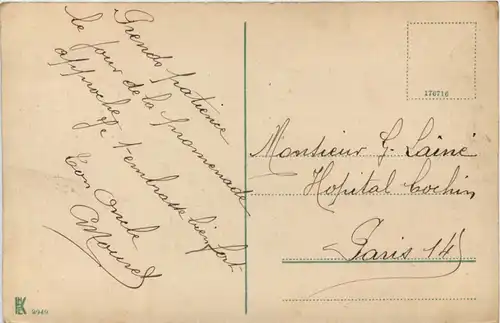 Prends patience
le jour de la promenade
approche, t'embrasse bien fort
Ton Oncle
Mouret
176716
Monsieur G. Lainé
Hopital Cochin
Paris 14
9949